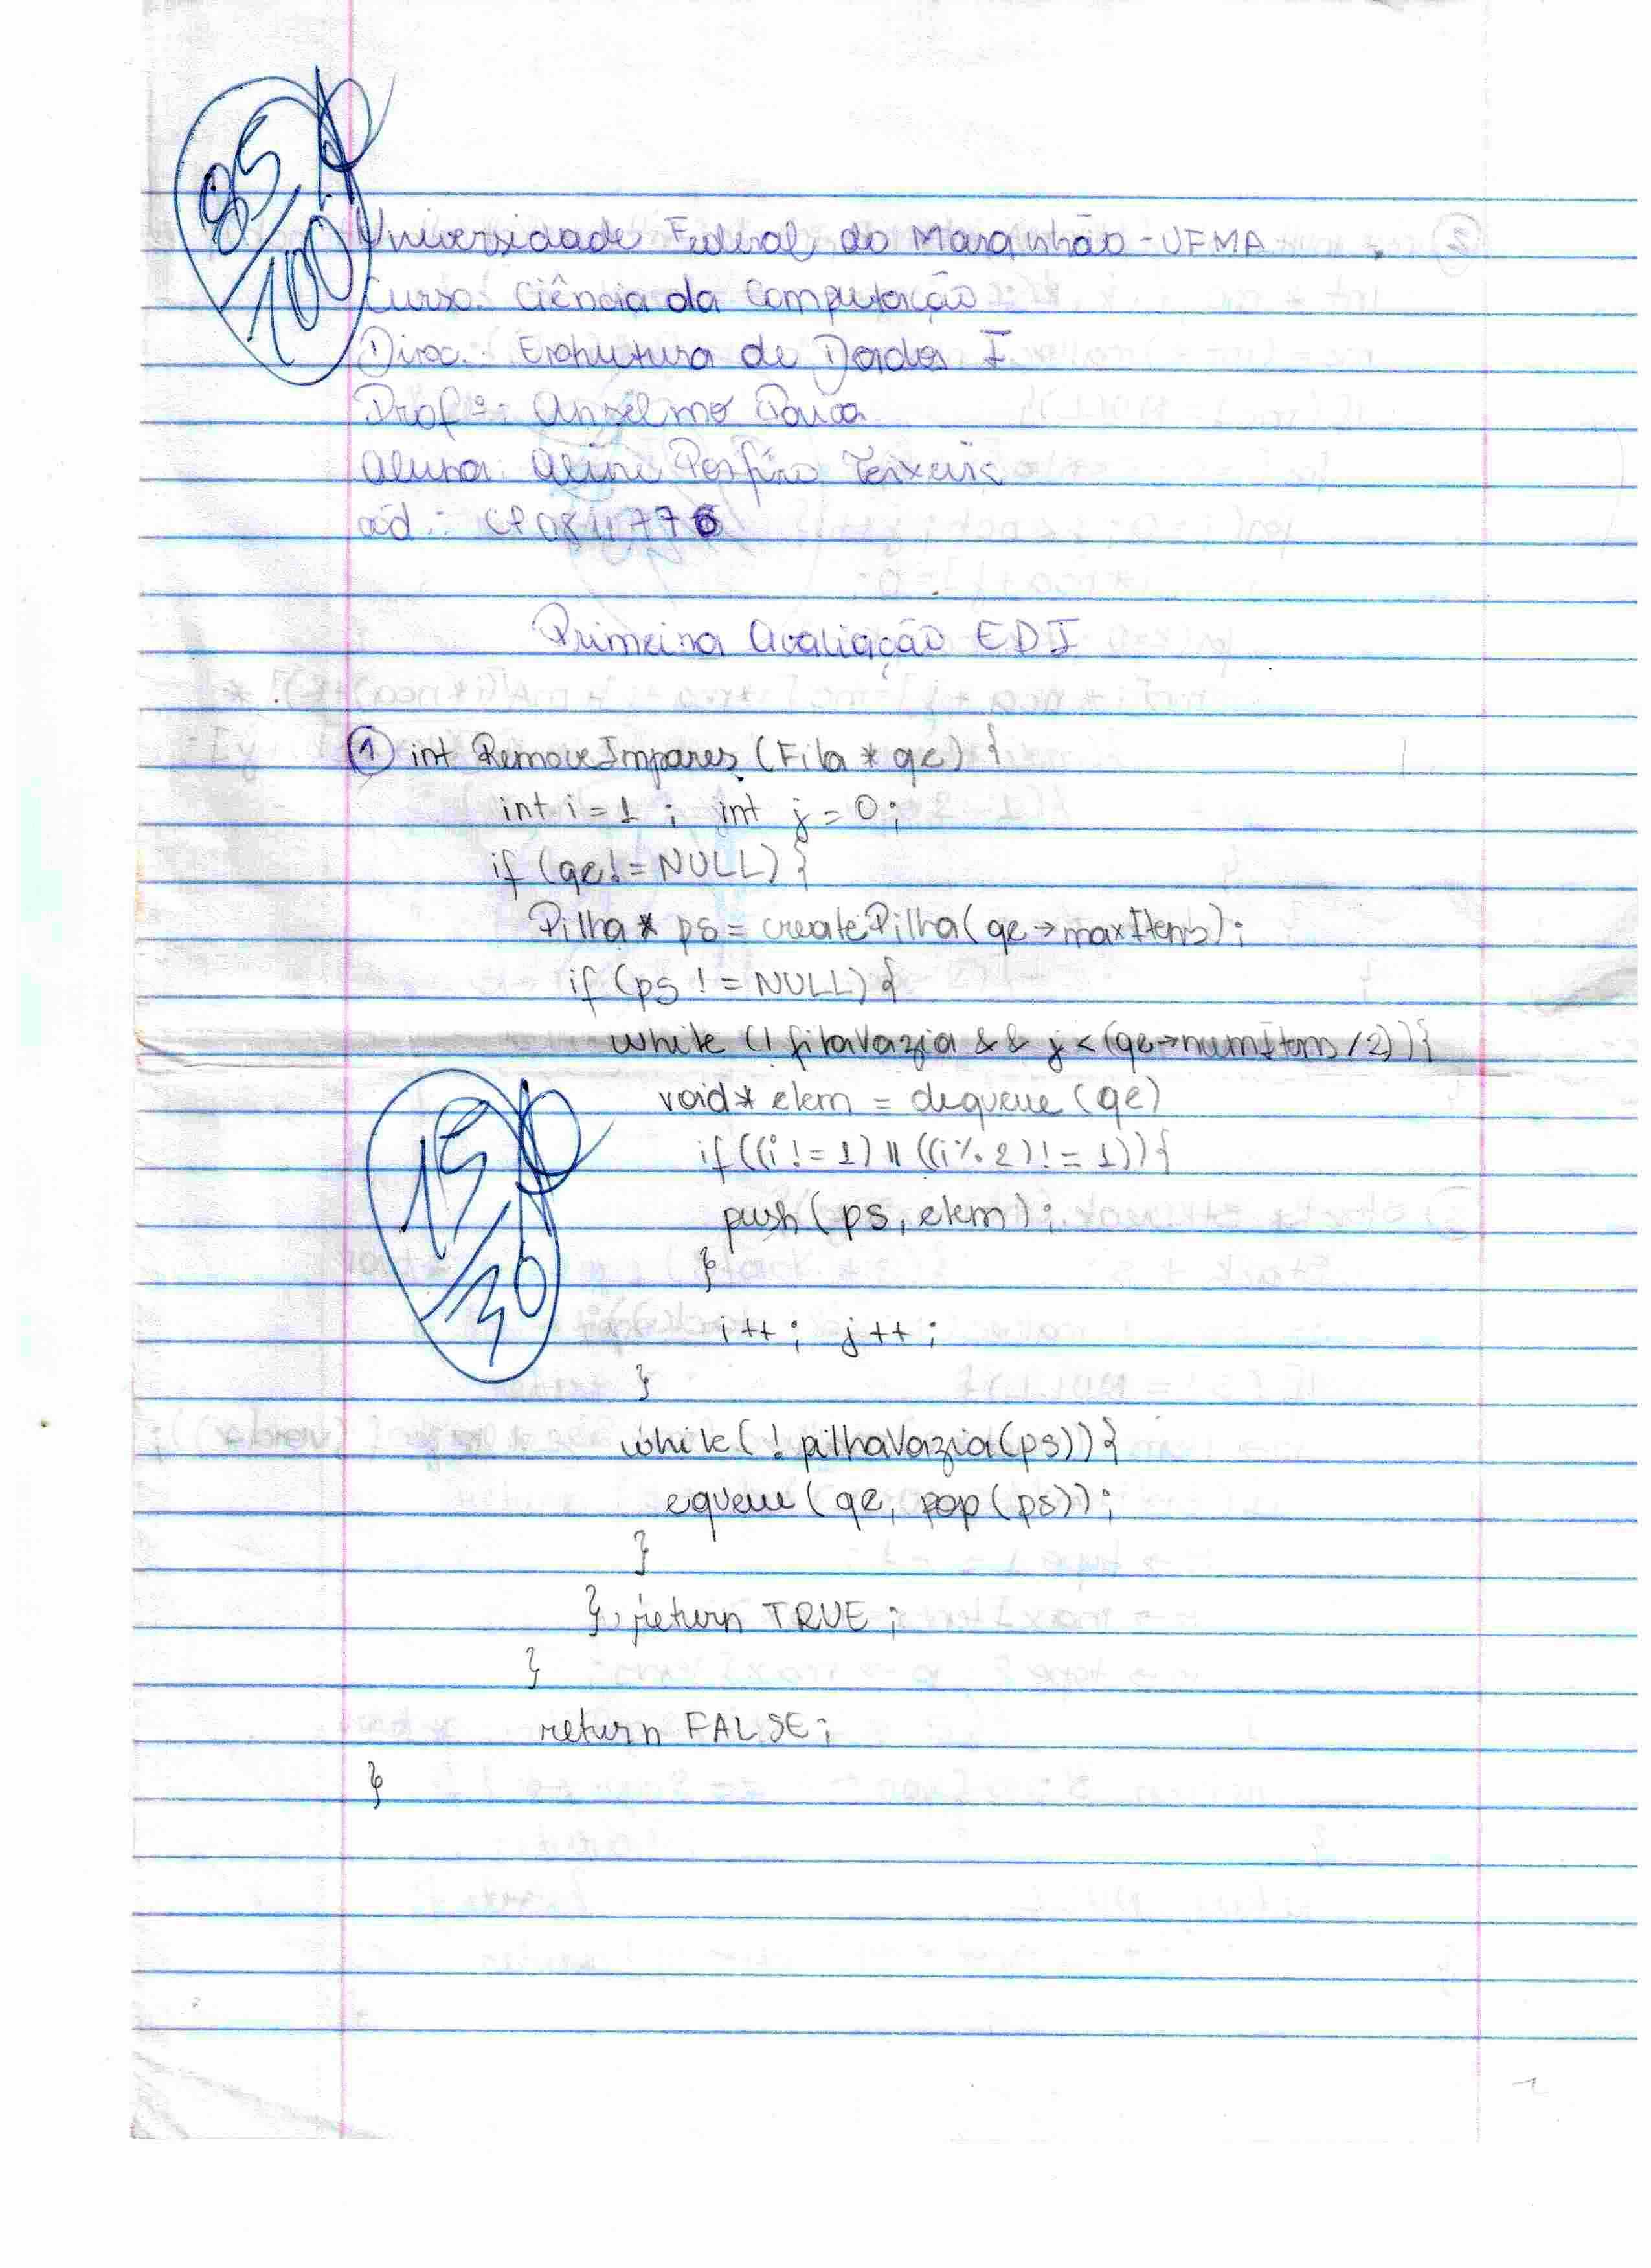 85/100
Universidade Federal do Maranhão - UFMA
Curso: Ciência da Computação
Disc.: Estrutura de Dados I
Profº: Anselmo Paiva
Aluna: Aline Porfiro Teixeira
cód.: CP0811776
Primeira Avaliação EDI
① int RemoveImpares (Fila * qe) {
int i = 1 ; int j = 0 ;
if (qe != NULL) {
Pilha * ps = createPilha (qe → maxItens) ;
if (ps != NULL) {
while (! filaVazia && j < (qe→numItens / 2)) {
void* elem = dequeue (qe)
if ((i != 1) || ((i % 2) != 1)) {
push ( ps, elem ) ;
}
15/30
i ++ ; j ++ ;
}
while ( ! pilhaVazia (ps)) {
equeue ( qe, pop (ps)) ;
}
} return TRUE ;
}
return FALSE ;
}